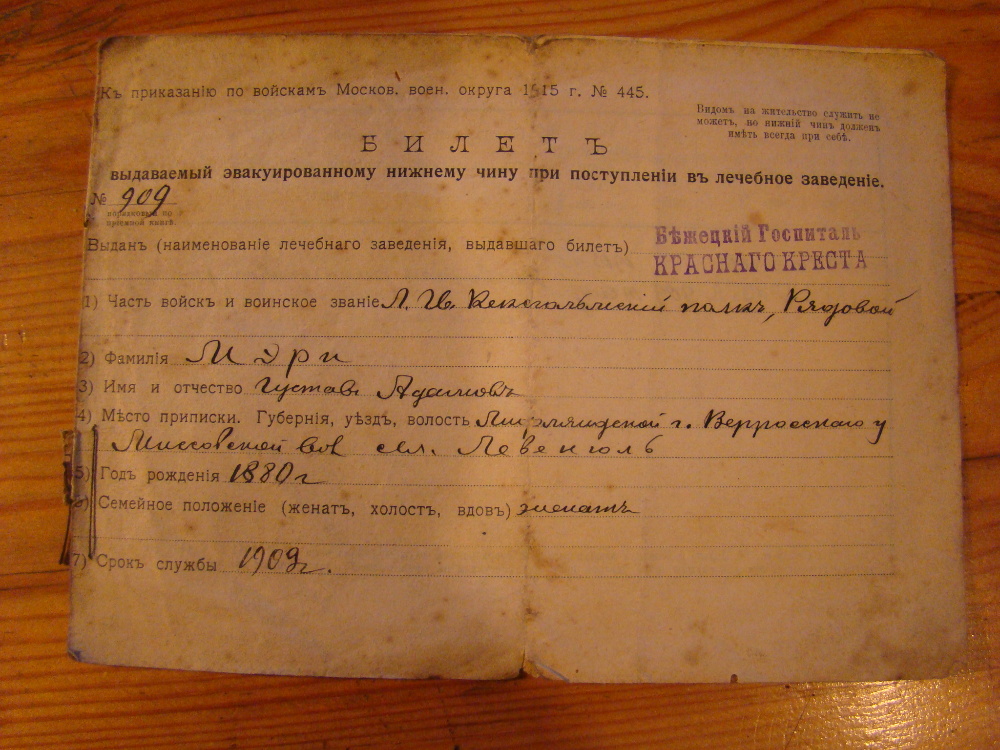 Къ приказанію по войскамъ Москов. воен. округа 1915 г. № 445.
Видомъ на жительство служить не
можетъ, но нижній чинъ долженъ
имѣть всегда при себѣ.
БИЛЕТЪ
выдаваемый эвакуированному нижнему чину при поступленіи въ лечебное заведеніе.
№ 909
нормаковый по
пріемной книгѣ.
Выданъ (наименованіе лечебнаго заведенія, выдавшаго билетъ)
Бѣжецкій Госпиталь
КРАСНАГО КРЕСТА
1) Часть войскъ и воинское званіе Л. Гв. Кексгольмскій полкъ, Рядовой
2) Фамилія Мэри
3) Имя и отчество Густавъ Адамовъ
4) Мѣсто приписки. Губернія, уѣздъ, волость Лифляндской г. Верроскаго у
Миссовской вол
5) Годъ рожденія 1880 г
6) Семейное положеніе (женатъ, холостъ, вдовъ) женатъ
7) Срокъ службы 1909 г.